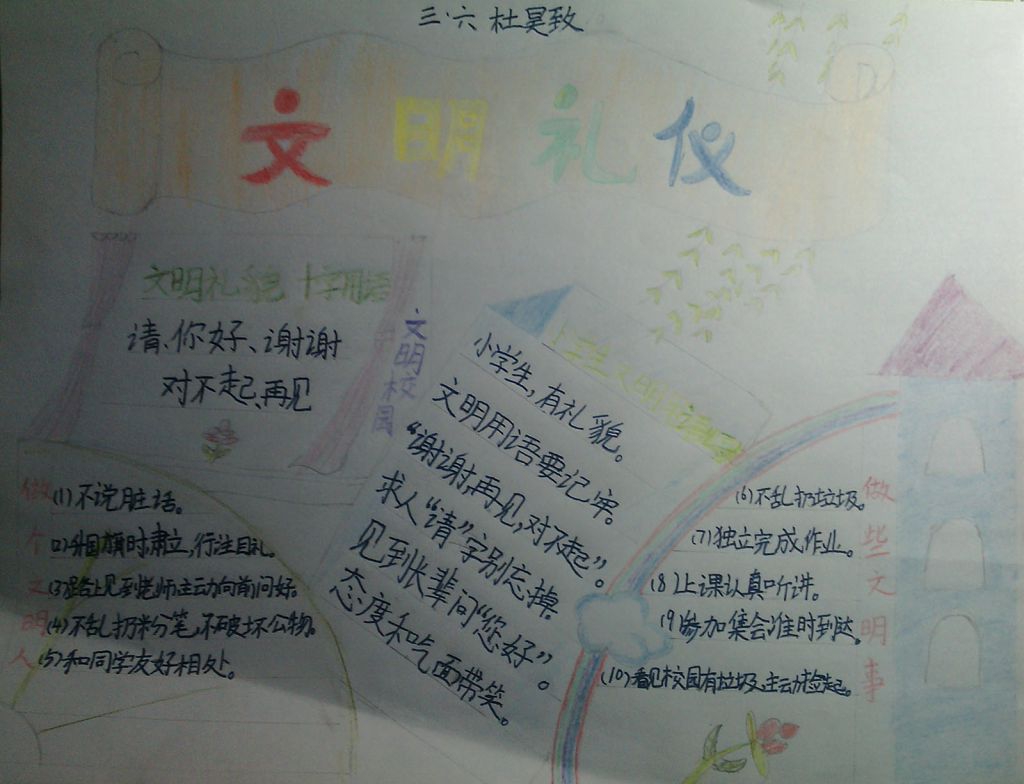 三·六 杜昊致
文明礼仪
文明礼貌 十字用语
请、你好、谢谢
对不起、再见
文明校园
小学生文明用语
小学生,有礼貌。
文明用语要记牢。
“谢谢,再见,对不起”。
求人“请”字别忘掉。
见到长辈问“您好”。
态度和气面带笑。
做个文明人
(1)不说脏话。
(2)升国旗时肃立,行注目礼。
(3)路上见到老师主动向前问好。
(4)不乱扔粉笔,不破坏公物。
(5)和同学友好相处。
做些文明事
(6)不乱扔垃圾。
(7)独立完成作业。
(8)上课认真听讲。
(9)参加集会准时到达。
(10)看见校园有垃圾主动捡起。